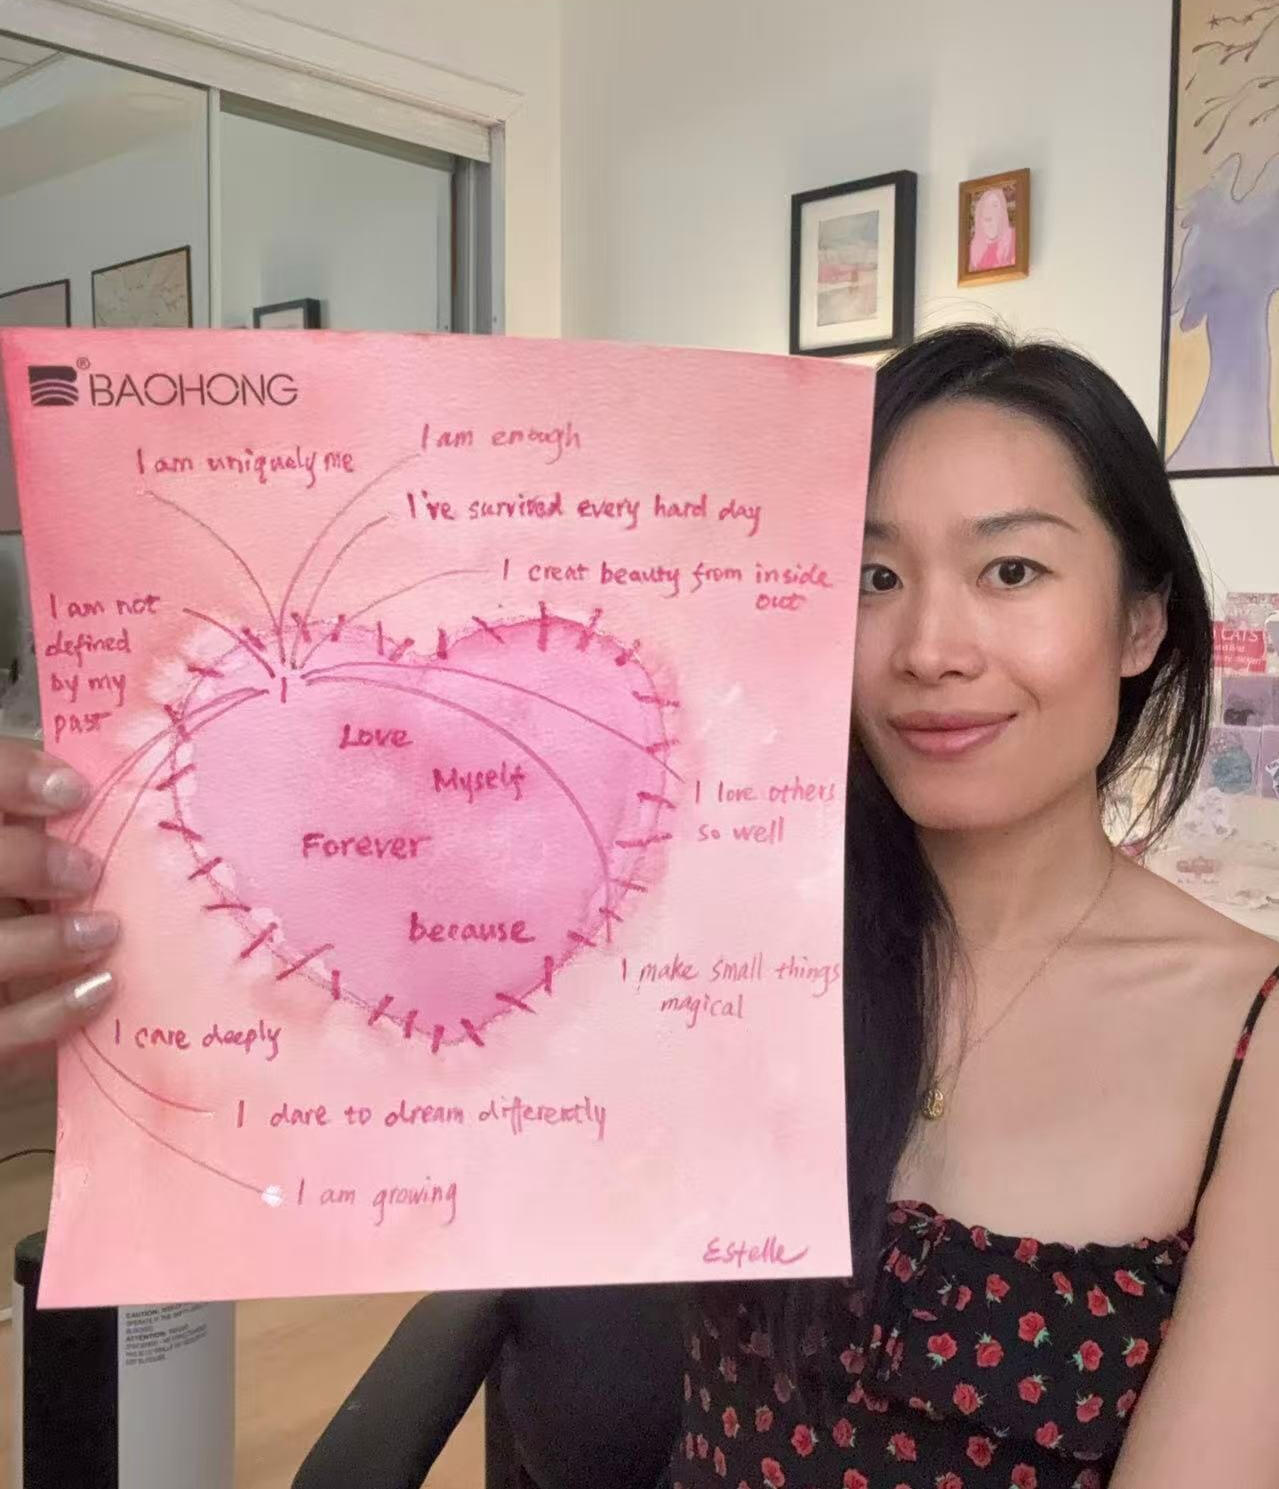 BAOHONG®
I am uniquely me
I am enough
I've survived every hard day
I creat beauty from inside
out
I am not
defined
by my
past
Love
Myself
Forever
because
I love others
so well
I make small things
magical
I care deeply
I dare to dream differently
I am growing
Estelle
CATS
CAUTION:
ATTENTION: